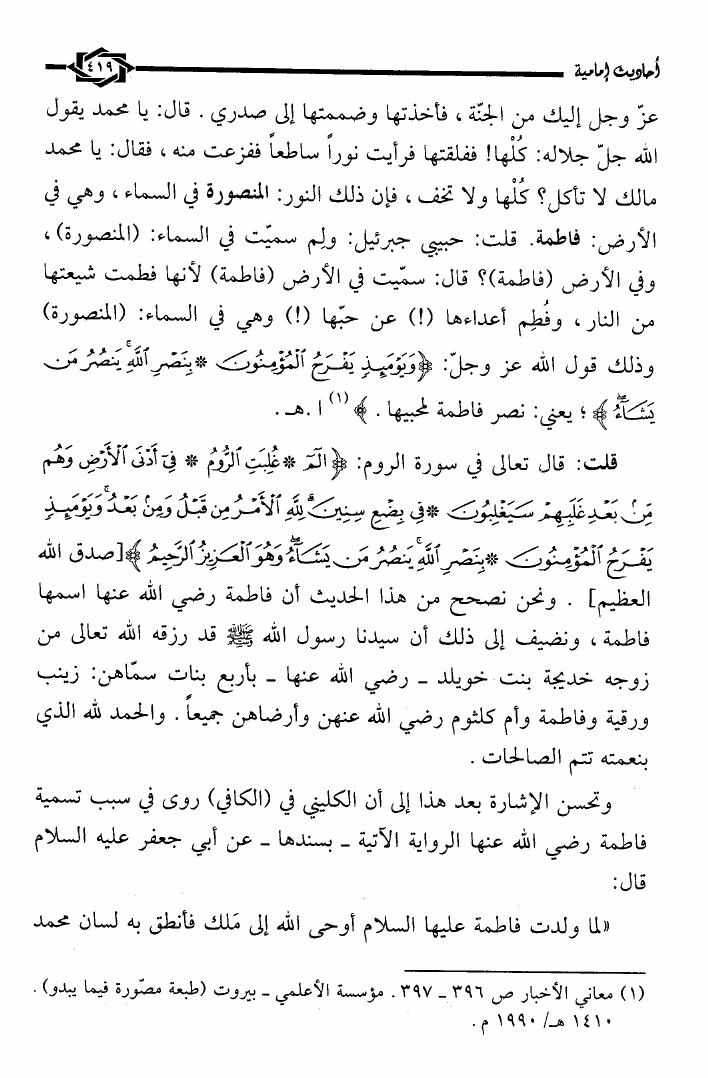 أحاديث إمامية
٤١٩
عزّ وجل إليك من الجنّة ، فأخذتها وضممتها إلى صدري . قال: يا محمد يقول
الله جلّ جلاله: كُلْها! ففلقتها فرأيت نوراً ساطعاً ففزعت منه ، فقال: يا محمد
مالك لا تأكل؟ كُلْها ولا تخف ، فإن ذلك النور: المنصورة في السماء ، وهي في
الأرض: فاطمة. قلت: حبيبي جبرئيل: ولِم سميّت في السماء: (المنصورة) ،
وفي الأرض (فاطمة)؟ قال: سمّيت في الأرض (فاطمة) لأنها فطمت شيعتها
من النار ، وفُطِم أعداءها (!) عن حبّها (!) وهي في السماء: (المنصورة)
وذلك قول الله عز وجلّ: ﴿وَيَوْمَئِذٍ يَفْرَحُ الْمُؤْمِنُونَ * بِنَصْرِ اللَّهِ يَنصُرُ مَن
يَشَاءُ﴾ ؛ يعني: نصر فاطمة لمحبيها . ﴾(١) ا .هـ .
قلت: قال تعالى في سورة الروم: ﴿الٓمٓ * غُلِبَتِ الرُّومُ * فِي أَدْنَى الْأَرْضِ وَهُم
مِّن بَعْدِ غَلَبِهِمْ سَيَغْلِبُونَ * فِي بِضْعِ سِنِينَ لِلَّهِ الْأَمْرُ مِن قَبْلُ وَمِن بَعْدُ وَيَوْمَئِذٍ
يَفْرَحُ الْمُؤْمِنُونَ * بِنَصْرِ اللَّهِ يَنصُرُ مَن يَشَاءُ وَهُوَ الْعَزِيزُ الرَّحِيمُ﴾[صدق الله
العظيم] . ونحن نصحح من هذا الحديث أن فاطمة رضي الله عنها اسمها
فاطمة ، ونضيف إلى ذلك أن سيدنا رسول الله ﷺ قد رزقه الله تعالى من
زوجه خديجة بنت خويلد ـ رضي الله عنها ـ بأربع بنات سمّاهن: زينب
ورقية وفاطمة وأم كلثوم رضي الله عنهن وأرضاهن جميعاً . والحمد لله الذي
بنعمته تتم الصالحات .
وتحسن الإشارة بعد هذا إلى أن الكليني في (الكافي) روى في سبب تسمية
فاطمة رضي الله عنها الرواية الآتية ـ بسندها ـ عن أبي جعفر عليه السلام
قال:
«لما ولدت فاطمة عليها السلام أوحى الله إلى مَلك فأنطق به لسان محمد
(١) معاني الأخبار ص ٣٩٦ ـ ٣٩٧ . مؤسسة الأعلمي ـ بيروت (طبعة مصّورة فيما يبدو) .
١٤١٠ هـ/ ١٩٩٠ م .